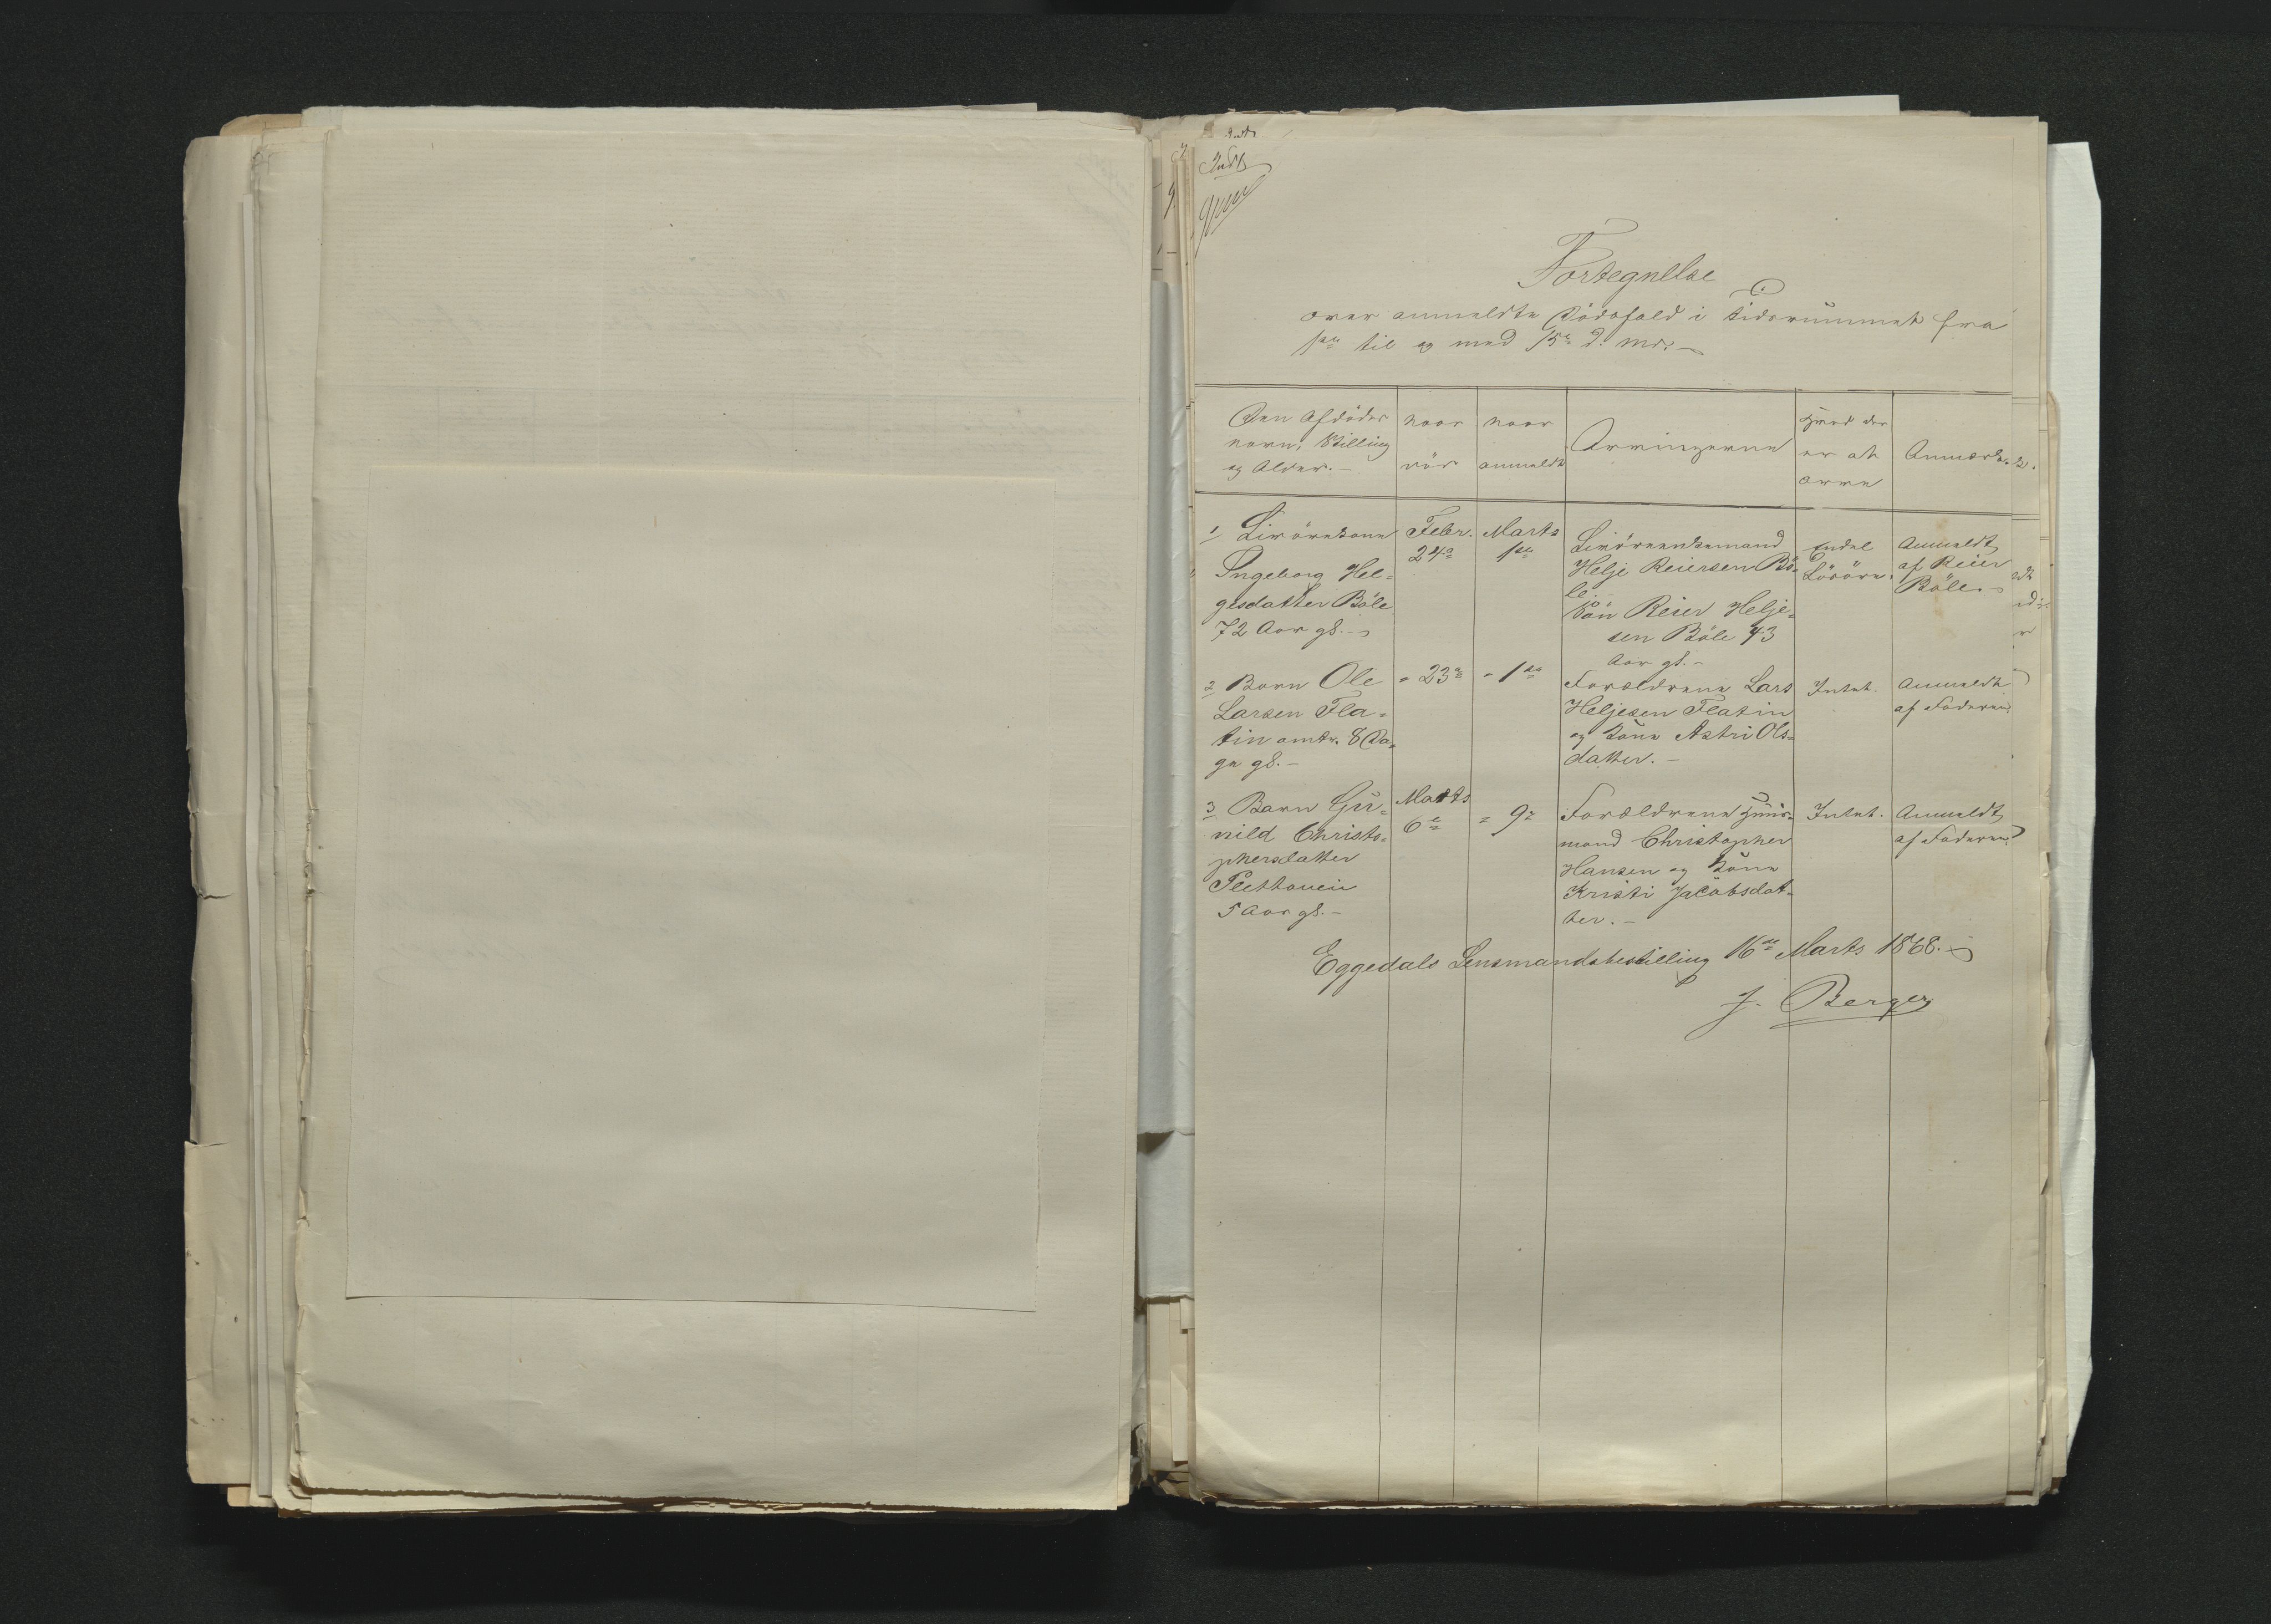 Indt
Fortegnelse
over anmeldte Dödsfald i Tidsrummet fra
1ste til og med 15de d. Md.
Den Afdödes
Navn, Stilling
og Alder.
naar
död
naar
anmeldt
Arvingerne
Hvad der
er at
arve
Anmærk.
1 Livörekone
Ingeborg Hel-
gesdatter Böle
72 Aar gl.
Febr.
24de
Marts
1ste
Livöreenkemand
Helje Reiersen Bö-
le.
Sön Reier Helje-
sen Böle 43
Aar gl.
Endel
Lösöre.
Anmeldt
af Reier
Böle.
2 Barn Ole
Larsen Fla-
tin omtr. 8 Da-
ge gl.
" 23de
" 1ste
Forældrene Lars
Heljesen Flatin
og Kone Astri Ols-
datter.
Intet.
Anmeldt
af Faderen.
3 Barn Gu-
nild Christo-
phersdatter
5 Aar gl.
Marts
6te
" 9de
Forældrene Huus-
mand Christopher
Hansen og Kone
Kristi Jacobsdat-
ter.
Intet.
Anmeldt
af Faderen.
Eggedals Lensmandsbestilling 16de Marts 1868.
J. Berger